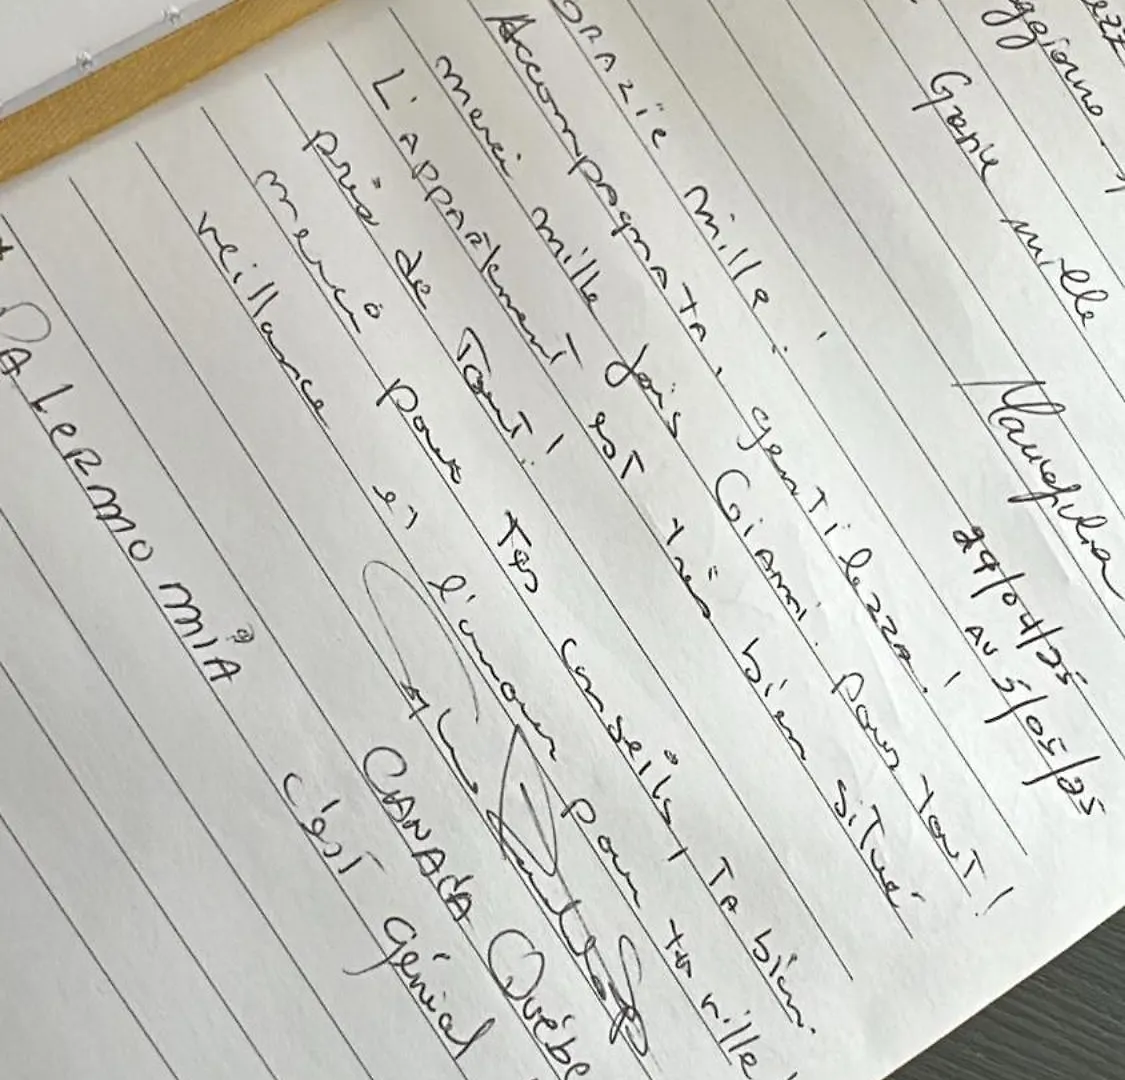 ezz
ggiorno
Grazie mille
29/04/25
AU 5/05/25
GRAZIE mille !
Accompagnata, gentilezza !
merci mille fois Gianni. Pour tout !
L'appartement est très bien situé
près de tout !
merci pour tes conseils, ta bien.
veillance et l'amour pour ta ville !
CANADA Québe
PALERMO MIA c'est génial